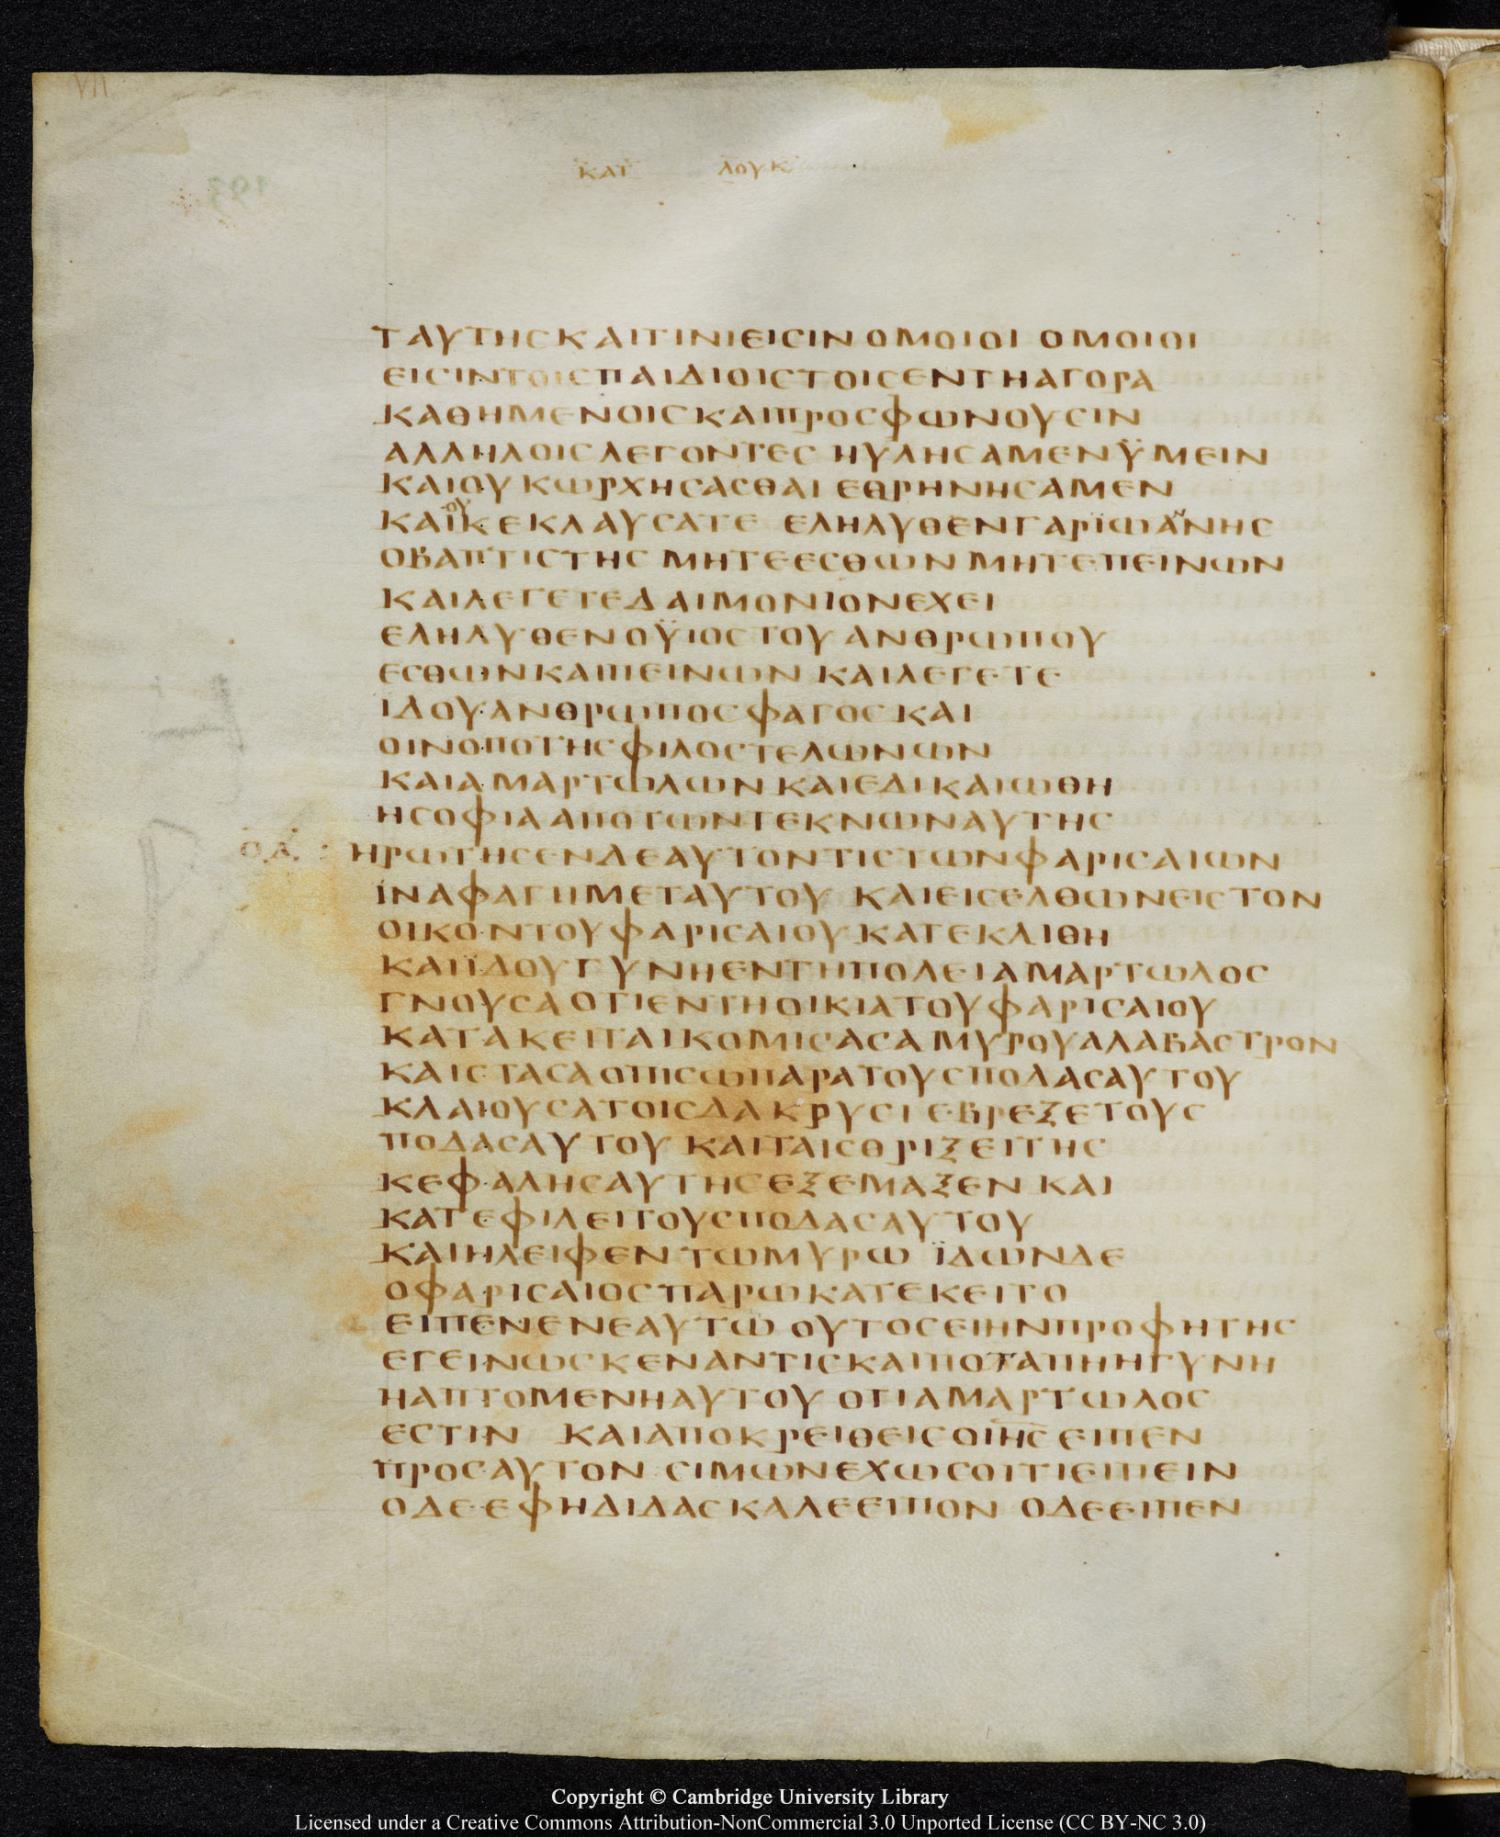 VII
193
ΚΑΤ ΛΟΥΚ
ΤΑΥΤΗϹΚΑΙΤΙΝΙΕΙϹΙΝ ΟΜΟΙΟΙ ΟΜΟΙΟΙ
ΕΙϹΙΝΤΟΙϹΠΑΙΔΙΟΙϹΤΟΙϹΕΝΤΗΑΓΟΡΑ
ΚΑΘΗΜΕΝΟΙϹΚΑΙΠΡΟϹΦΩΝΟΥϹΙΝ
ΑΛΛΗΛΟΙϹΛΕΓΟΝΤΕϹ ΗΥΛΗϹΑΜΕΝΫΜΕΙΝ
ΚΑΙΟΥΚΩΡΧΗϹΑϹΘΑΙ ΕΘΡΗΝΗϹΑΜΕΝ
ΟΥ Ν
ΚΑΪΚΕΚΛΑΥϹΑΤΕ ΕΛΗΛΥΘΕΝΓΑΡΪΩΑΝΗϹ
ΟΒΑΠΤΙϹΤΗϹ ΜΗΤΕΕϹΘΩΝΜΗΤΕΠΕΙΝΩΝ
ΚΑΙΛΕΓΕΤΕΔΑΙΜΟΝΙΟΝΕΧΕΙ
ΕΛΗΛΥΘΕΝΟΫΙΟϹΤΟΥΑΝΘΡΩΠΟΥ
ΕϹΘΩΝΚΑΙΠΕΙΝΩΝ ΚΑΙΛΕΓΕΤΕ
ΙΔΟΥΑΝΘΡΩΠΟϹΦΑΓΟϹΚΑΙ
ΟΙΝΟΠΟΤΗϹΦΙΛΟϹΤΕΛΩΝΩΝ
ΚΑΙΑΜΑΡΤΩΛΩΝ ΚΑΙΕΔΙΚΑΙΩΘΗ
ΗϹΟΦΙΑΑΠΟΤΩΝΤΕΚΝΩΝΑΥΤΗϹ
Ο.Α. : ΗΡΩΤΗϹΕΝΔΕΑΥΤΟΝΤΙϹΤΩΝΦΑΡΙϹΑΙΩΝ
ΙΝΑΦΑΓΗΜΕΤΑΥΤΟΥ ΚΑΙΕΙϹΕΛΘΩΝΕΙϹΤΟΝ
ΟΙΚΟΝΤΟΥΦΑΡΙϹΑΙΟΥΚΑΤΕΚΛΙΘΗ
ΚΑΙΪΔΟΥΓΥΝΗΕΝΤΗΠΟΛΕΙΑΜΑΡΤΩΛΟϹ
ΓΝΟΥϹΑΟΤΙΕΝΤΗΟΙΚΙΑΤΟΥΦΑΡΙϹΑΙΟΥ
ΚΑΤΑΚΕΙΤΑΙΚΟΜΙϹΑϹΑΜΥΡΟΥΑΛΑΒΑϹΤΡΟΝ
ΚΑΙϹΤΑϹΑΟΠΙϹΩΠΑΡΑΤΟΥϹΠΟΔΑϹΑΥΤΟΥ
ΚΛΑΙΟΥϹΑΤΟΙϹΔΑΚΡΥϹΙ ΕΒΡΕΞΕΤΟΥϹ
ΠΟΔΑϹΑΥΤΟΥ ΚΑΙΤΑΙϹΘΡΙΞΕΙΤΗϹ
ΚΕΦΑΛΗϹΑΥΤΗϹΕΞΕΜΑΞΕΝ ΚΑΙ
ΚΑΤΕΦΙΛΕΙΤΟΥϹΠΟΔΑϹΑΥΤΟΥ
ΚΑΙΗΛΕΙΦΕΝΤΩΜΥΡΩ ΪΔΩΝΔΕ
ΟΦΑΡΙϹΑΙΟϹΠΑΡΩΚΑΤΕΚΕΙΤΟ
ΕΙΠΕΝΕΝΕΑΥΤΩ ΟΥΤΟϹΕΙΗΝΠΡΟΦΗΤΗϹ
ΕΓΕΙΝΩϹΚΕΝΑΝΤΙϹΚΑΙΠΟΤΑΠΗΗΓΥΝΗ
ΗΑΠΤΟΜΕΝΗΑΥΤΟΥ ΟΤΙΑΜΑΡΤΩΛΟϹ
ΕϹΤΙΝ ΚΑΙΑΠΟΚΡΕΙΘΕΙϹΟΙΗϹΕΙΠΕΝ
ΠΡΟϹΑΥΤΟΝ ϹΙΜΩΝΕΧΩϹΟΙΤΙΕΙΠΕΙΝ
ΟΔΕΕΦΗΔΙΔΑϹΚΑΛΕΕΙΠΟΝ ΟΔΕΕΙΠΕΝ
Copyright © Cambridge University Library
Licensed under a Creative Commons Attribution-NonCommercial 3.0 Unported License (CC BY-NC 3.0)